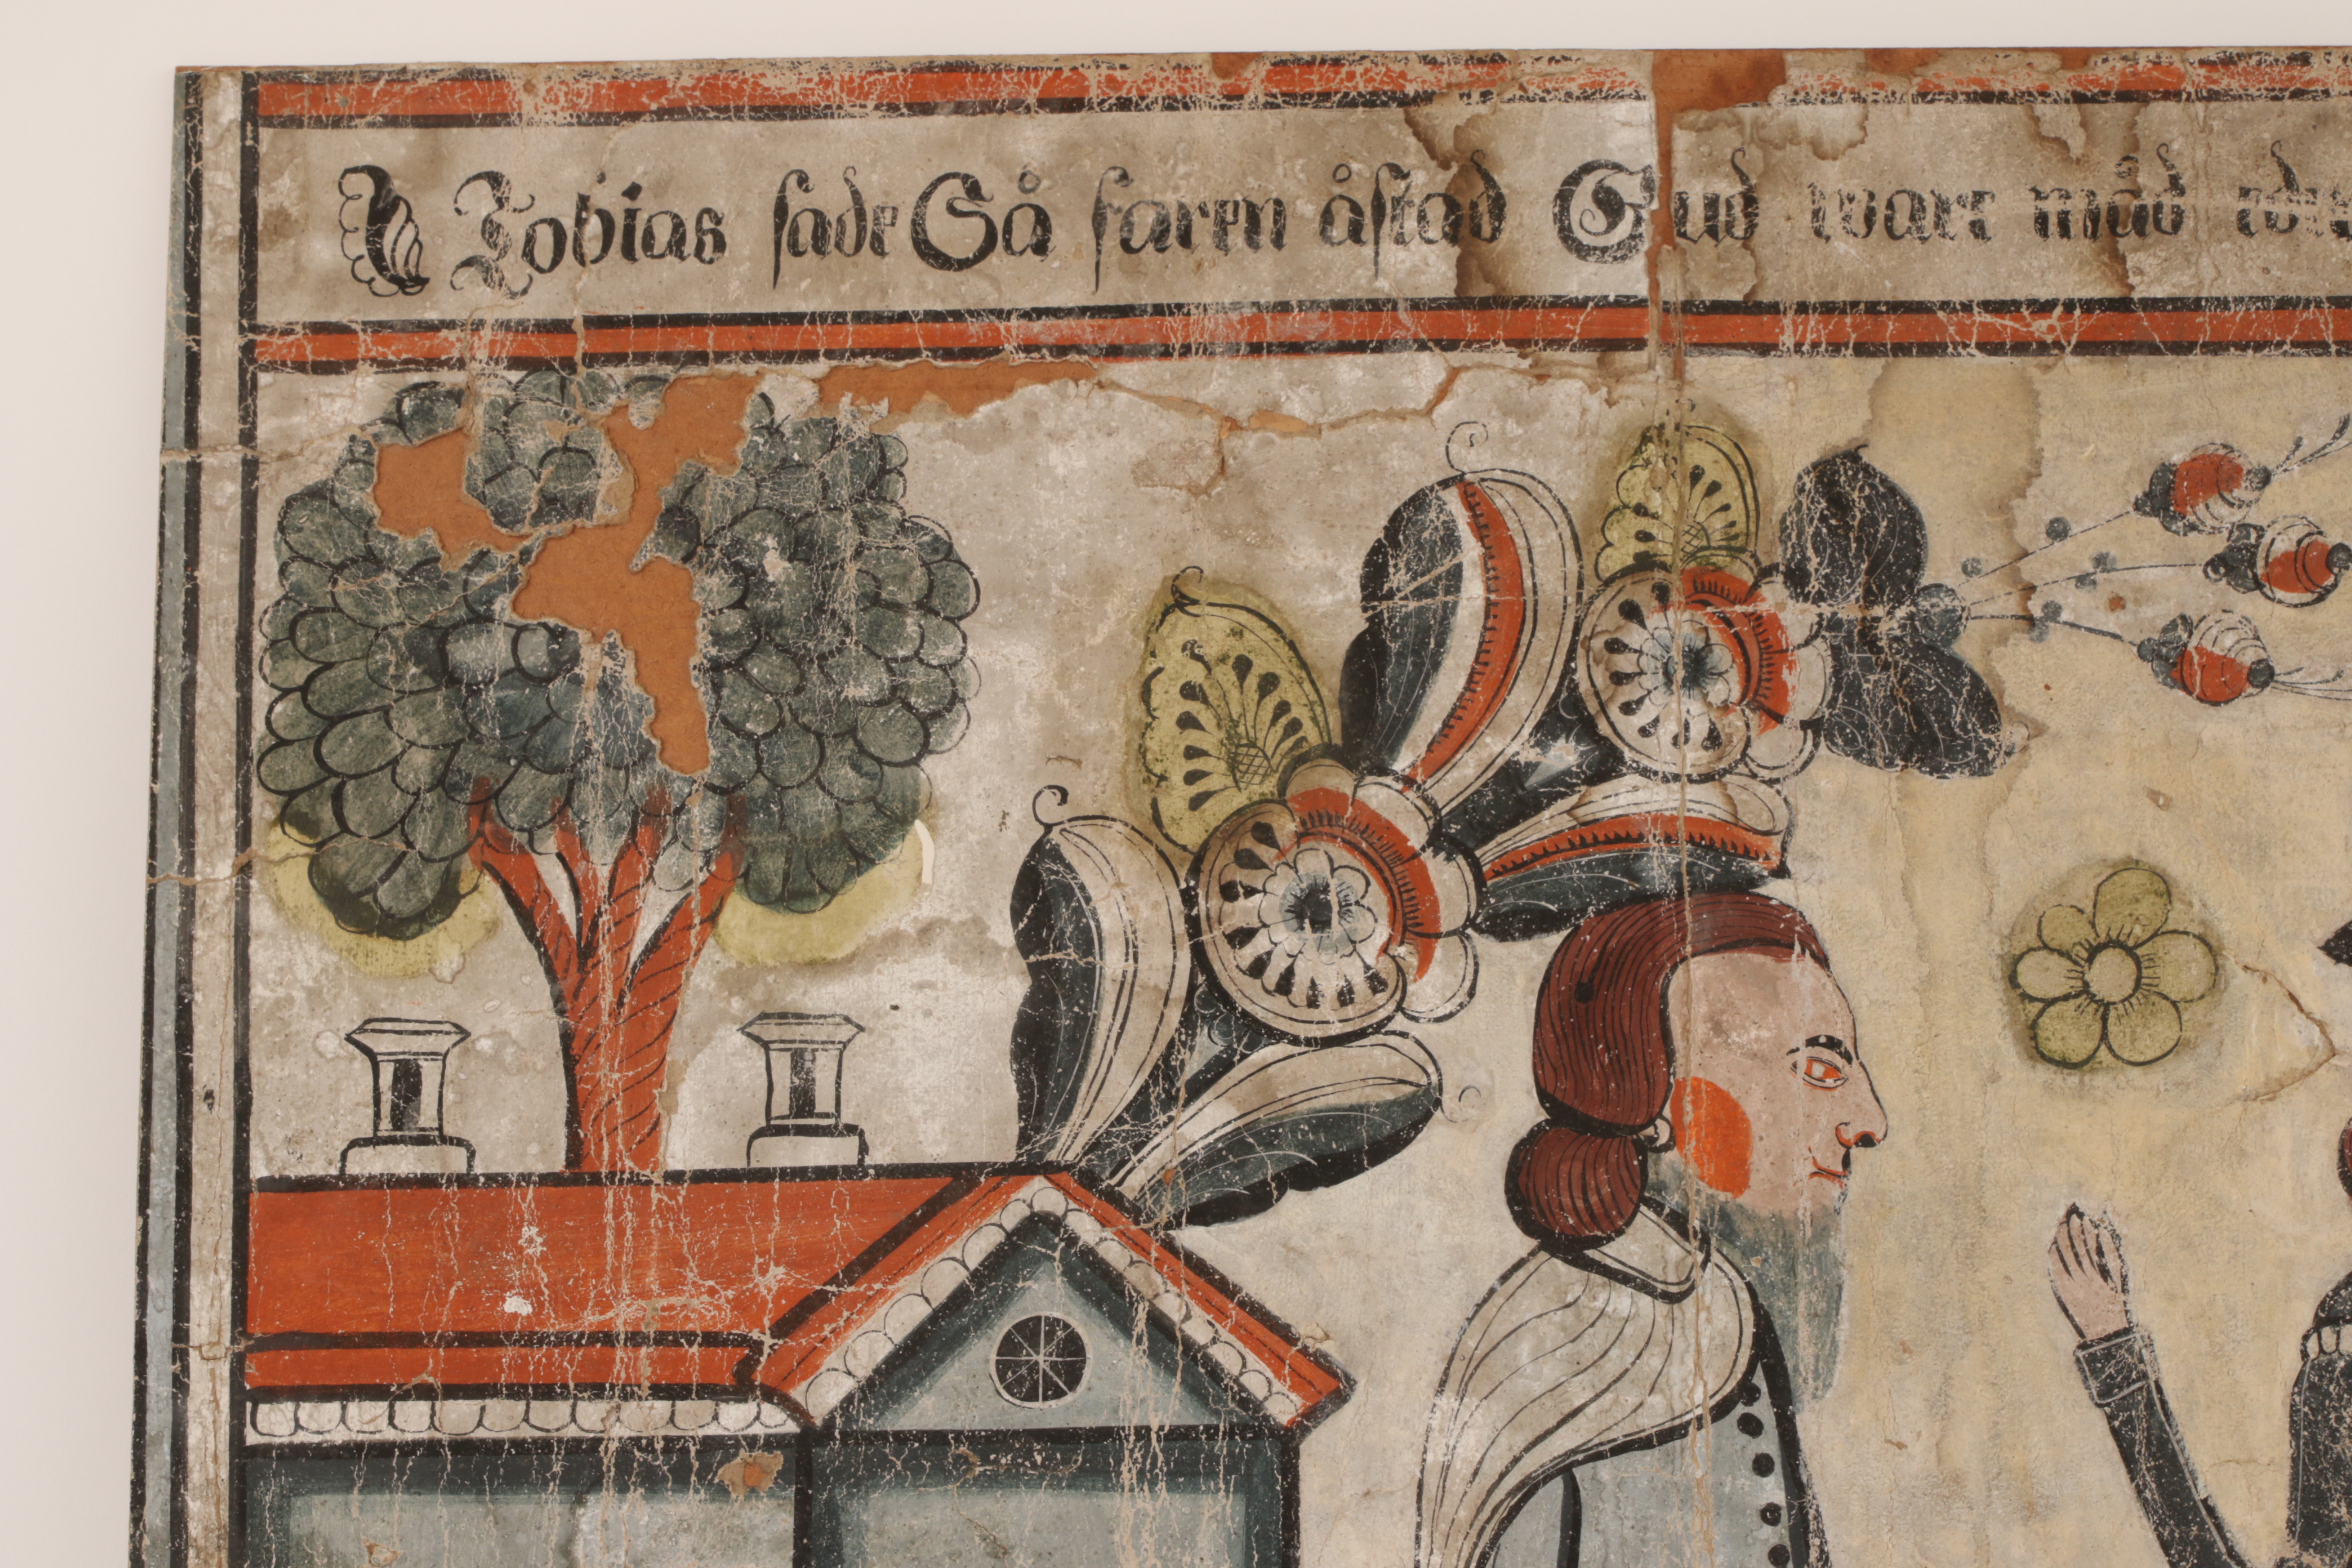 Tobias sade Så faren åstad Gud ware måd